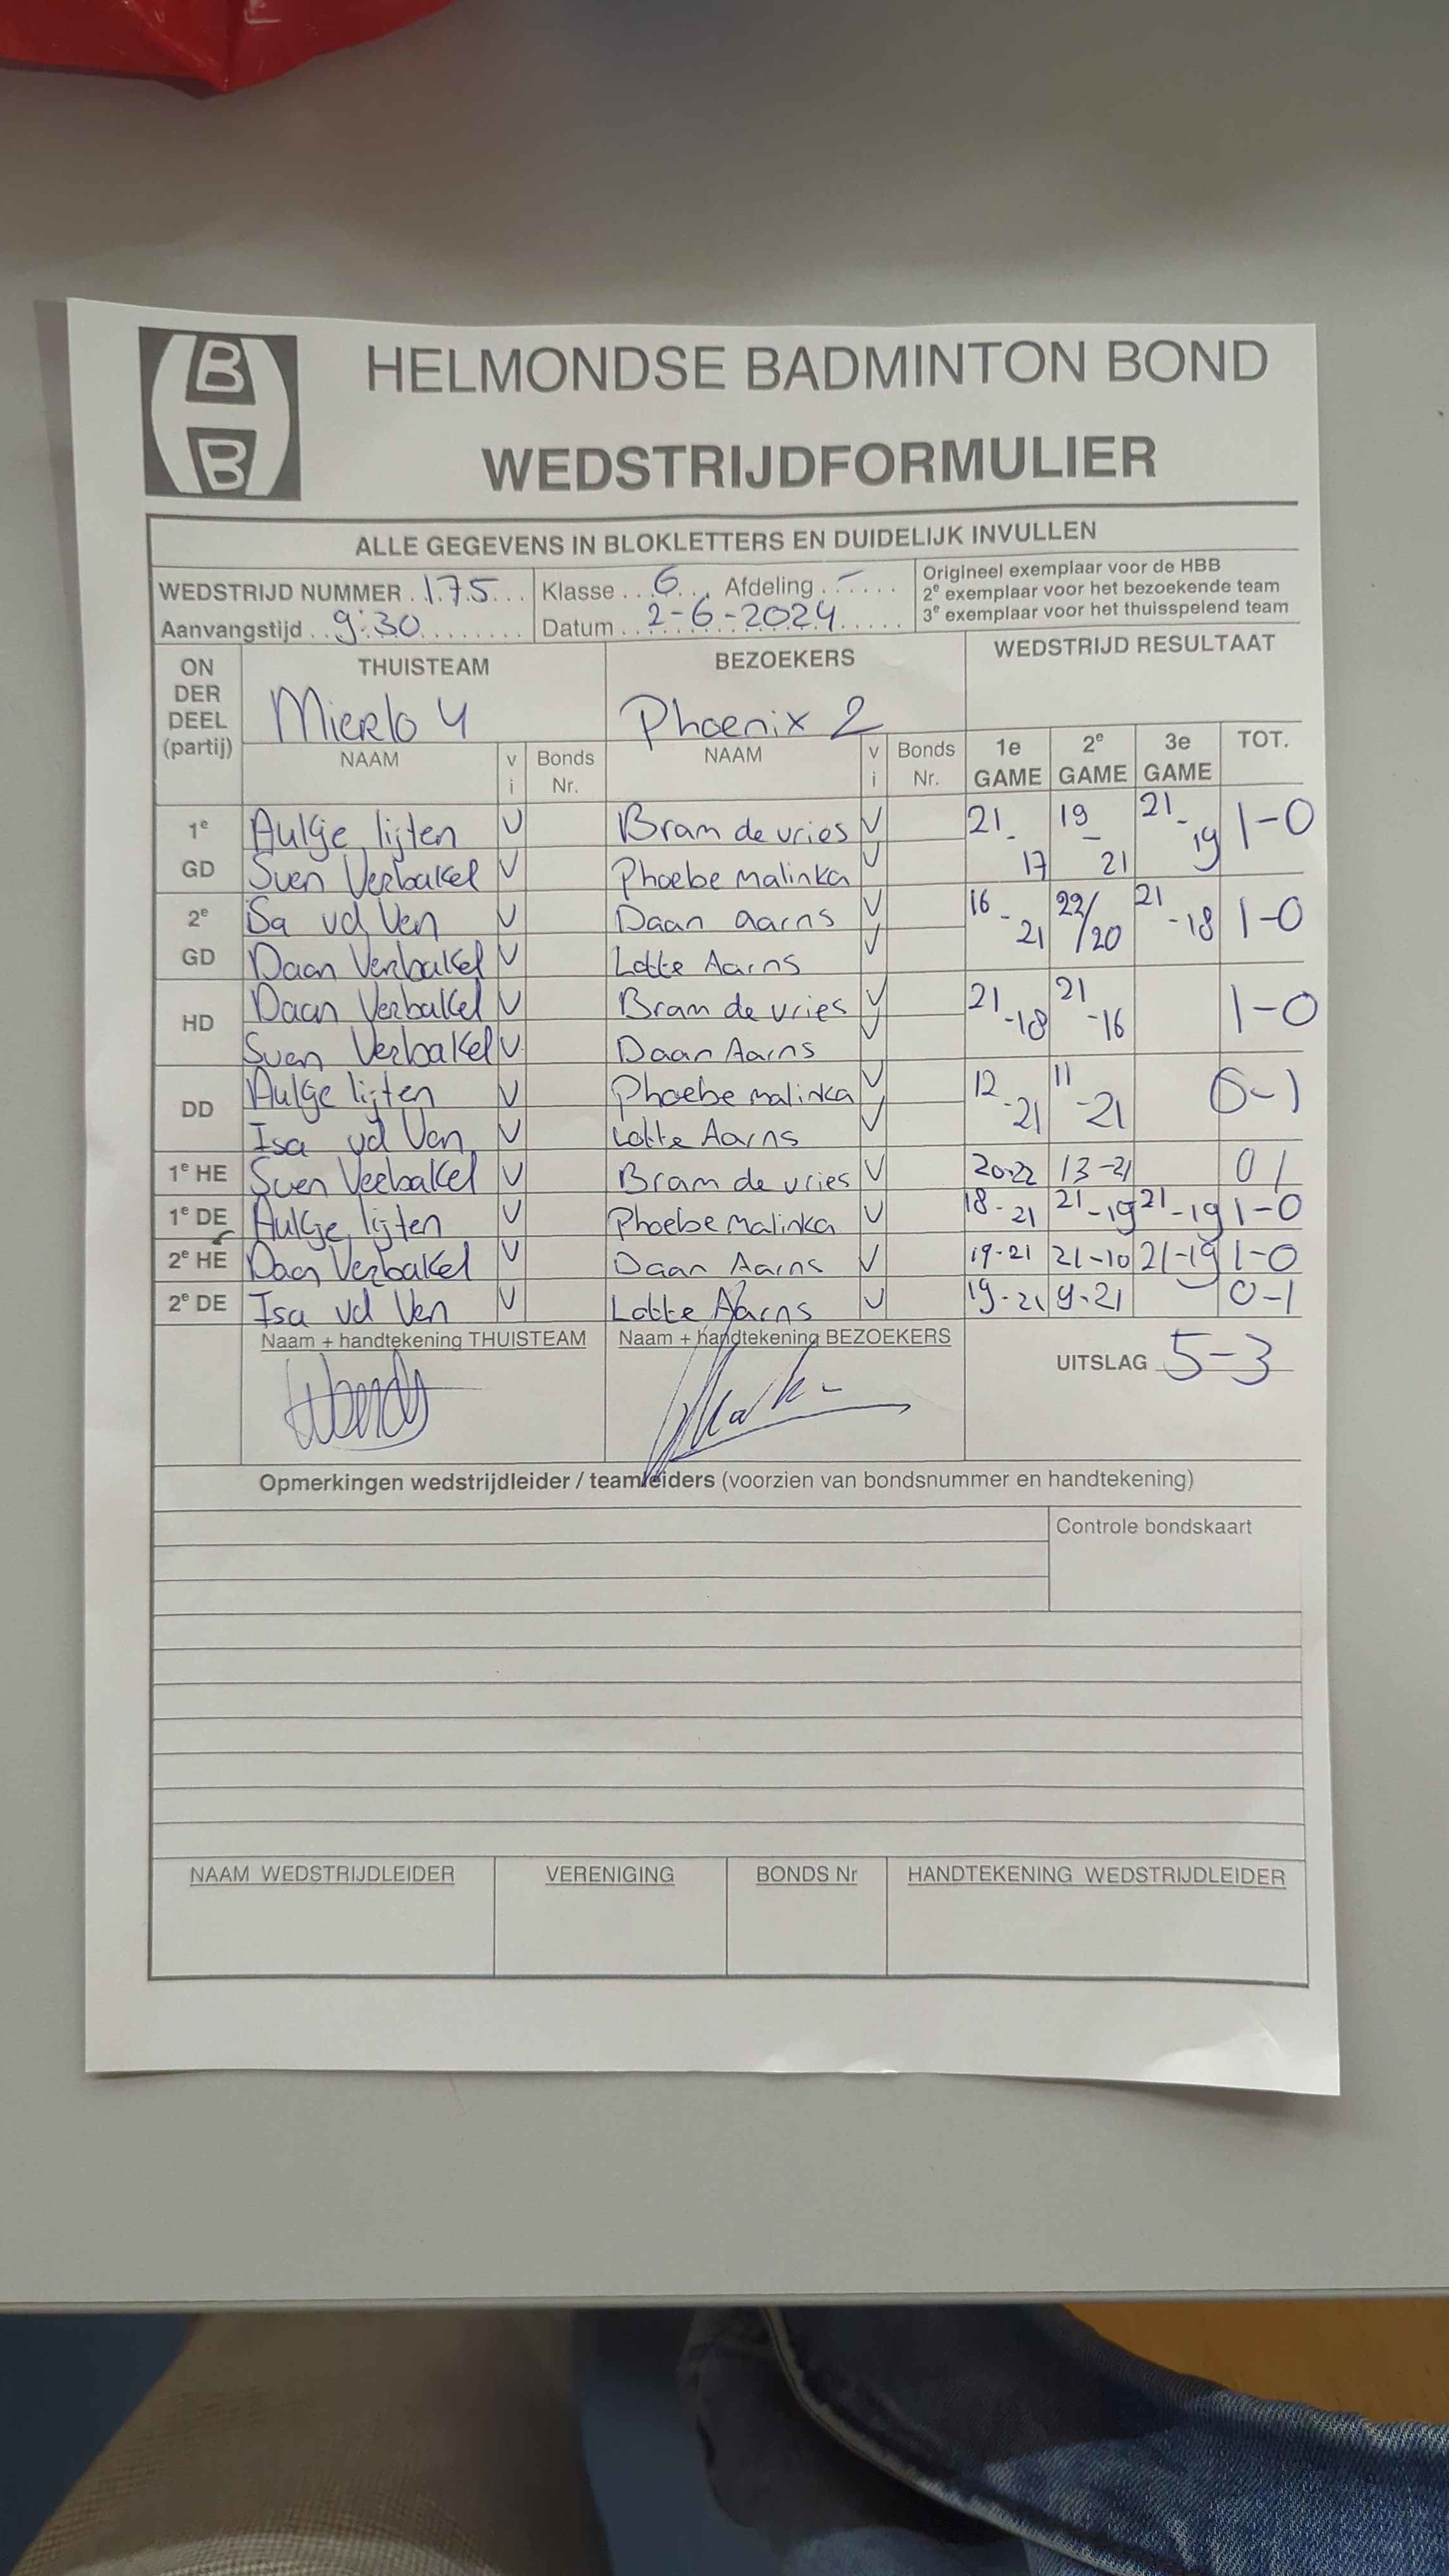 B
B
HELMONDSE BADMINTON BOND
WEDSTRIJDFORMULIER
ALLE GEGEVENS IN BLOKLETTERS EN DUIDELIJK INVULLEN
WEDSTRIJD NUMMER . 175 . . . Klasse . . . 6 . . . Afdeling . - . . . . .
Aanvangstijd . . 9:30 . . . . . . . . Datum . . 2-6-2024 . . . . .
Origineel exemplaar voor de HBB
2e exemplaar voor het bezoekende team
3e exemplaar voor het thuisspelend team
ON DER DEEL (partij) THUISTEAM BEZOEKERS WEDSTRIJD RESULTAAT
Mierlo 4 Phoenix 2
NAAM v i Bonds Nr. NAAM v i Bonds Nr. 1e GAME 2e GAME 3e GAME TOT.
1e GD Aukje lijten V Bram de vries V 21-17 19-21 21-19 1-0
Sven Verbakel V Phoebe Malinka V
2e GD Isa vd Ven V Daan aarns V 16-21 22/20 21-18 1-0
Daan Verbakel V Lotte Aarns V
HD Daan Verbakel V Bram de vries V 21-18 21-16 1-0
Sven Verbakel V Daan Aarns V
DD Aukje lijten V Phoebe malinka V 12-21 11-21 0-1
Isa vd Ven V Lotte Aarns V
1e HE Sven Verbakel V Bram de vries V 20-22 13-21 0 1
1e DE Aukje lijten V Phoebe Malinka V 18-21 21-19 21-19 1-0
2e HE Daan Verbakel V Daan Aarns V 19-21 21-10 21-19 1-0
2e DE Isa vd Ven V Lotte Aarns V 19-21 9-21 0-1
Naam + handtekening THUISTEAM Naam + handtekening BEZOEKERS
UITSLAG 5-3
Opmerkingen wedstrijdleider / teamleiders (voorzien van bondsnummer en handtekening)
Controle bondskaart
NAAM WEDSTRIJDLEIDER VERENIGING BONDS Nr HANDTEKENING WEDSTRIJDLEIDER